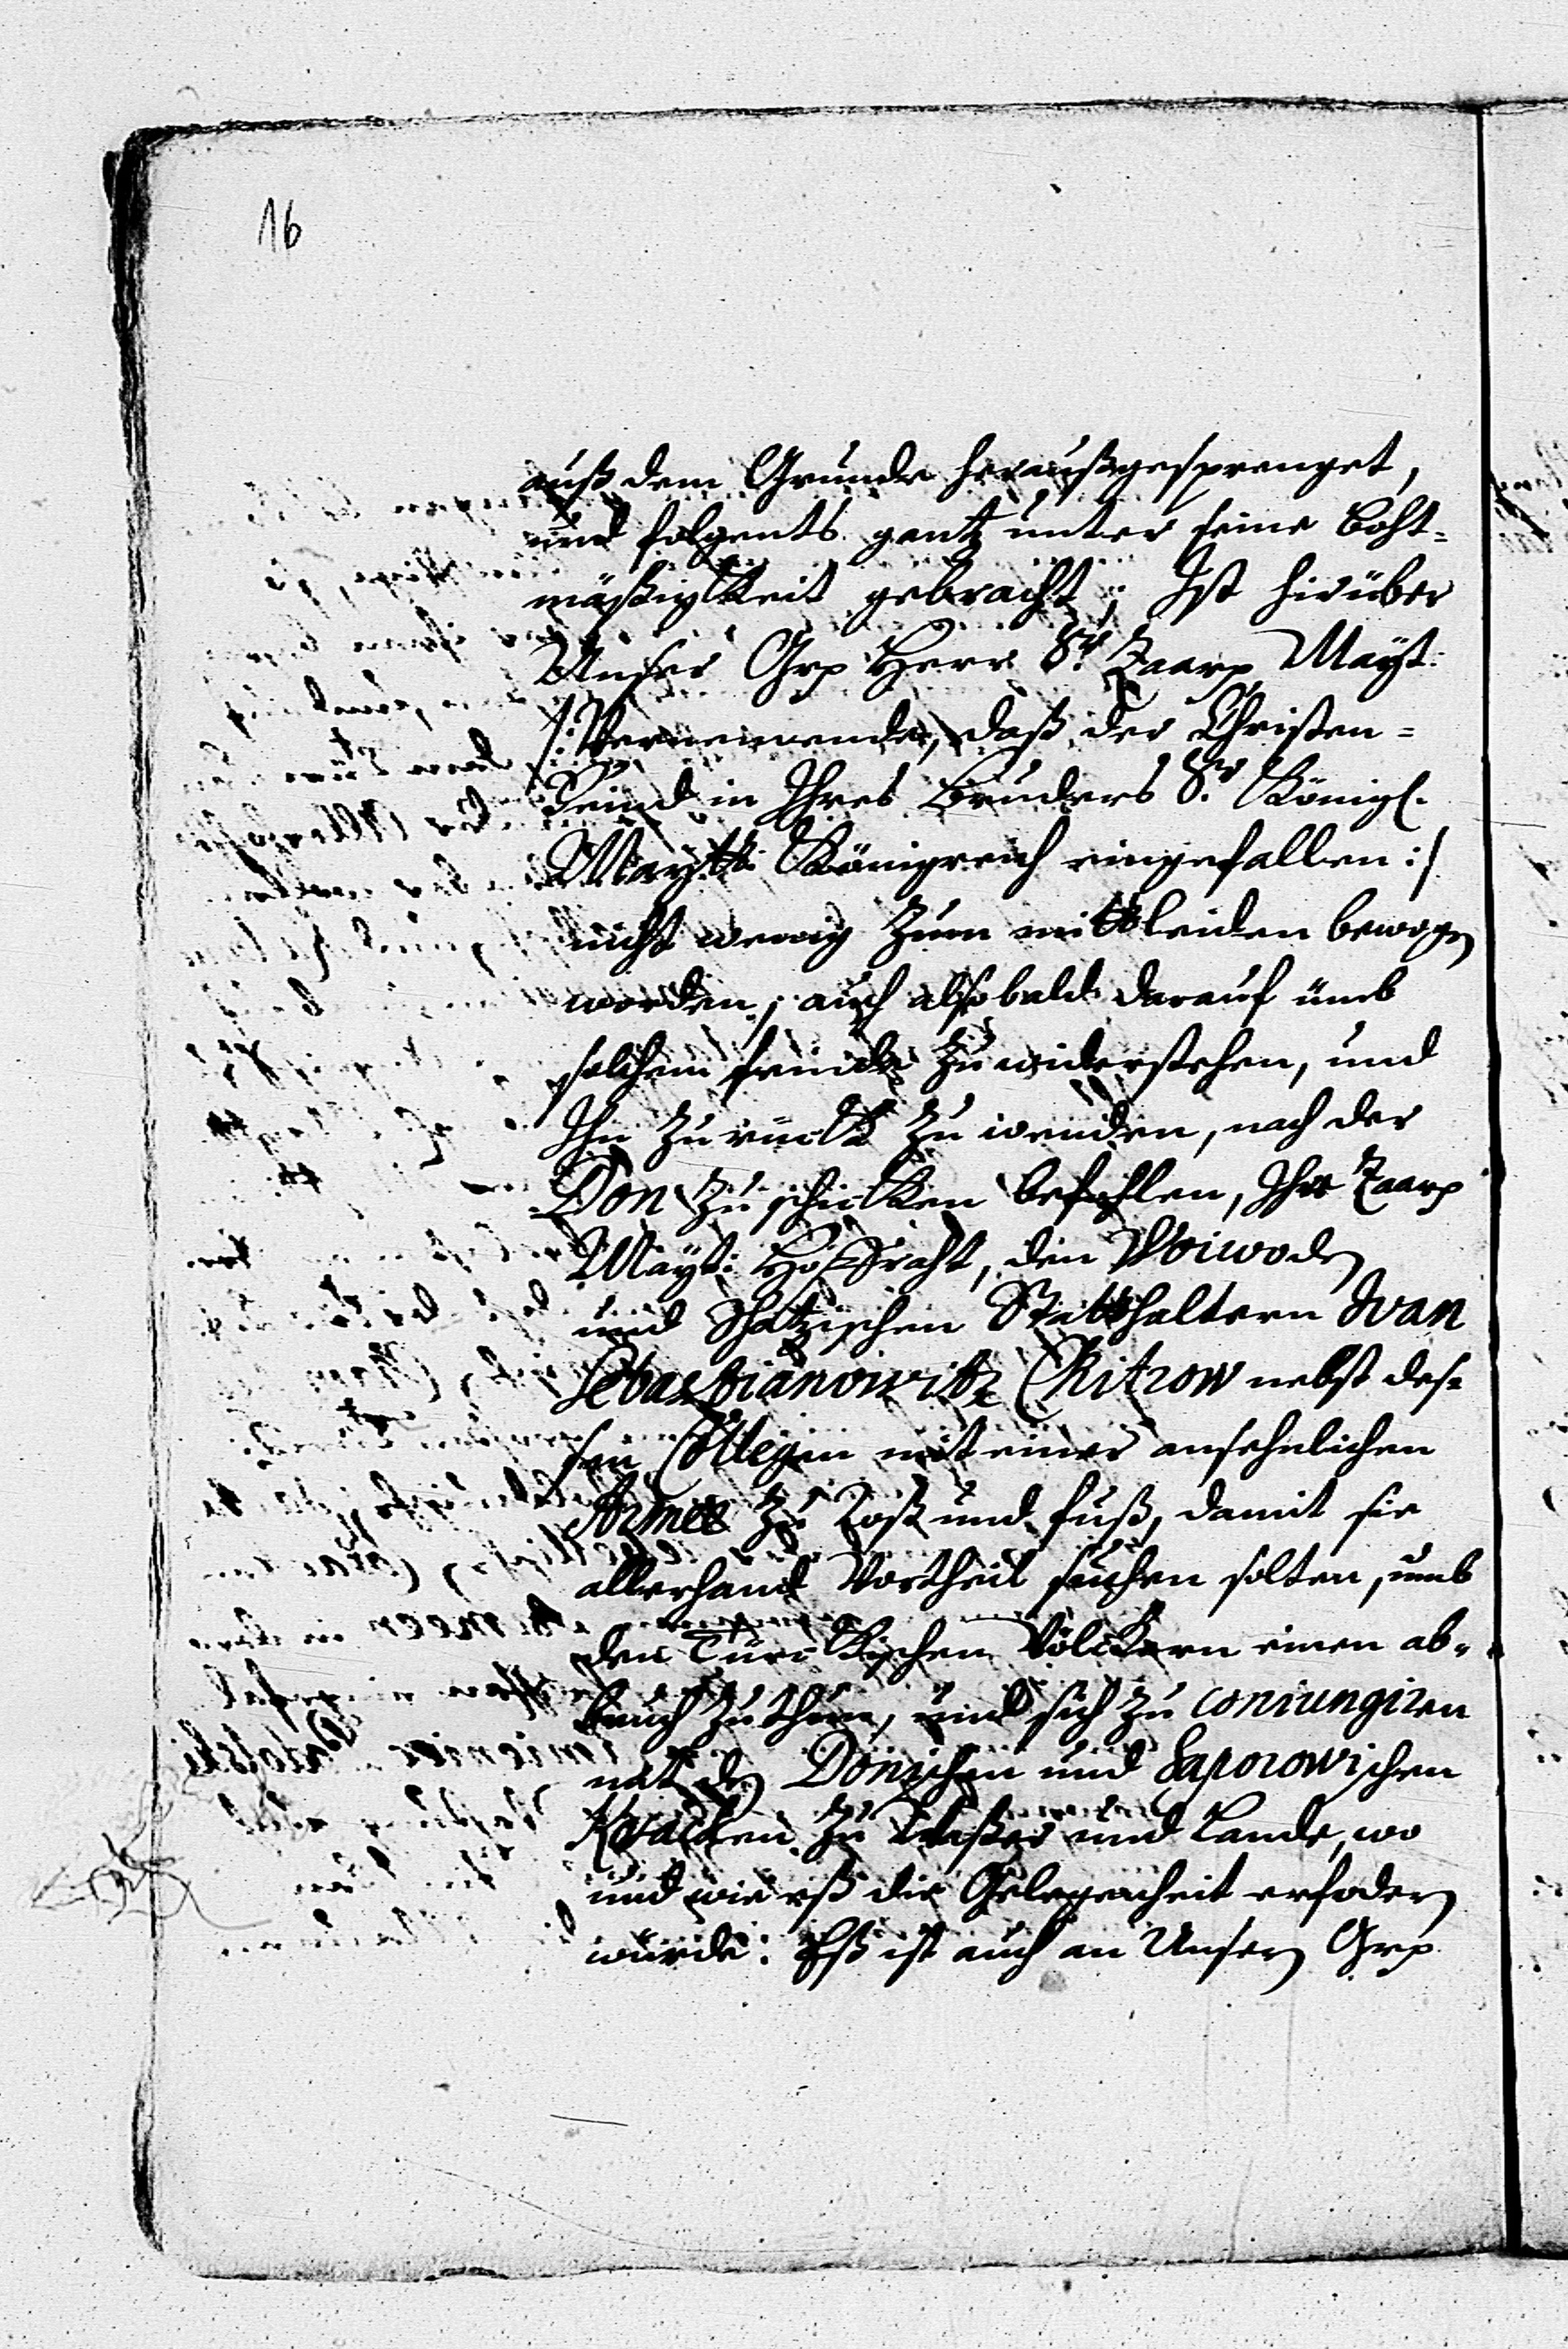 16
auß dem Grunde heraußgesprenget,
und folgents gantz unter seine Boht-
mäßigkeit gebracht; Ist hirüber
Unser Grp Herr Sr Zaarp Mayt:
/: Vernemende, daß der Christen-
Feind in Ihres Bruders Sr Königl.
Maytt: Königreich eingefallen :/
nicht wenig zum mittleiden bewogen
worden; auch alsobald darauf umb
solchem feinde zu widerstehen, und
Ihn zurück zu wenden, nach der
Don zu schicken befohlen, Ihr Zaarp
Mayt: Hoffraht, den Woiwoden
und Schatzischen Statthaltern Ivan
Sebastianowitz Chitrow nebst des-
sen Collegen mit einer ansehnlichen
Armee zu Roß und fuß, damit sie
allerhand Vortheil suchen solten, umb
den Türckischen Völckern einen ab-
bruch zu thun, und sich zu coniungiren
mit den Donischen und Saporowischen
Kosacken zu Waßer und Lande, wo
und wie eß die Gelegenheit erfodern
würde: Eß ist auch an Unsern Grp